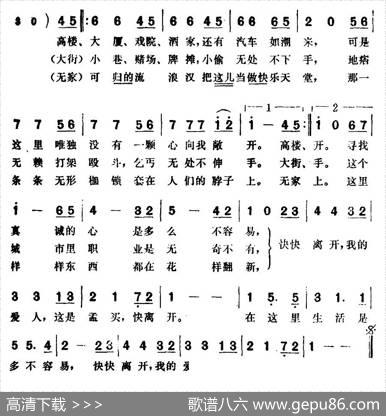 3 0 ) 4 5 : 6 6 45 5 1 6 45 6 6 65 2 0 56
高楼、大 厦、戏院、酒 家,还有 汽车 如潮 来, 可是
(大街)小 巷、赌场、牌 摊,小偷 无处 不下 手, 地痞
(无家)可 归的流 浪汉 把这儿当做快乐天 堂, 那一
7 7 56 7 7 56 7 7 12 1 — 45 : 1 0 67
这 里 唯独 没 有 一颗 心 向我 敞 开。 高楼、开。 寻找
无 赖 打架 殴 斗,乞丐 无 处不 伸 手。 大街、手。 这个
条 条 无形 枷 锁 套在 人 们的 脖子 上。 无家 上。 这里
1 — 65 4 — 32 5 — 42 1 0 23 4 4 32
真 诚的 心 是多 么 不容 易,
城 市里 职 业是 无 奇不 有,
样 样东 西 都在 花 样翻 新,
快快 离 开,我的
3 3 13 2 1 72 1 — — 1 5. 5 3 1. 1
爱 人,这是 孟 买,快离 开。 在 这 里 生 活 是
55. 4 2 — 23 4 4 32 3 3 13 2 1 72 1 —
多 不容 易, 快快 离 开,我的
高清下载 >>>
歌谱八六 www.gepu86.com